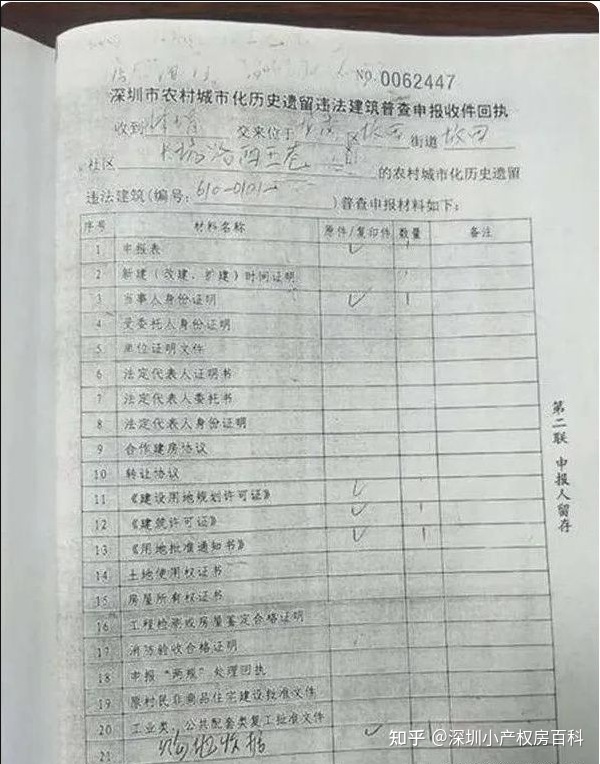 NO. 0062447
深圳市农村城市化历史遗留违法建筑普查申报收件回执
收到 交来位于 区坂田街道坂田
社区 的农村城市化历史遗留
违法建筑(编号: 610-0101- )普查申报材料如下:
序号 材料名称 原件/复印件 数量 备注
1 申报表 ✓ 1
2 新建(改建、扩建)时间证明
3 当事人身份证明 ✓ 1
4 受委托人身份证明
5 单位证明文件
6 法定代表人证明书
7 法定代表人委托书
8 法定代表人身份证明
9 合作建房协议
10 转让协议
11 《建设用地规划许可证》 ✓ 1
12 《建筑许可证》 ✓ 1
13 《用地批准通知书》 ✓ 1
14 土地使用权证书
15 房屋所有权证书
16 工程检测或房屋鉴定合格证明
17 消防验收合格证明
18 申报“两规”处理回执
19 原村民非商品住宅建设批准文件
20 工业类、公共配套类复工批准文件
21 收据 ✓
第二联 申报人留存
知乎 @深圳小产权房百科